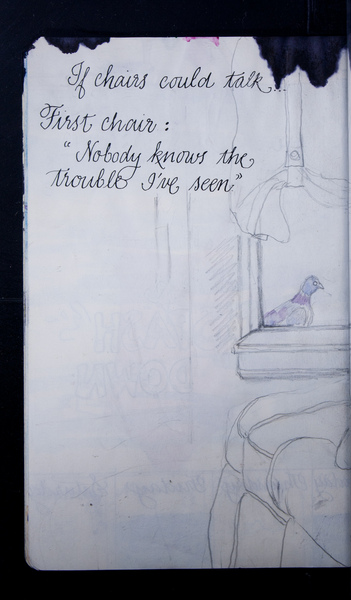 If chairs could talk...
First chair:
"Nobody knows the
trouble I've seen"